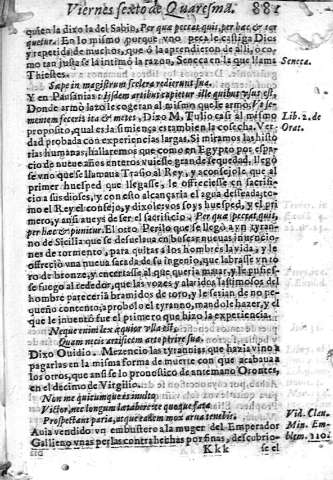 Viernes sexto de Quaresma. 881
quien la dixo la del Sabio, Per quæ peccat quis, per hæc, & tor
quetur. En lo mismo, porque vno peca le castiga Dios
y repetida de muchos, que ô la aprendieron de alli, ô co-
mo tan justa se la intimò la razon, Seneca en la que llama
Thiestes. Seneca.
Sape in magistrum scelera redierunt sua.
Y en Pausanias: Iisdem artibus
Donde armò lazo le cogeran al mismo que le armò,
mentem feceris ita & metes, Dixo M, Tulio casi al mismo Lib. 2. de
proposito, qual es la simiença es tambien la cosecha, Ver- Orat.
dad probada con experiencias largas. Si miramos las histo
rias humanas, hallaremos que como en Egypto por espa-
cio de nueue años enteros vuiesse grande sequedad, llegô
se vno que se llamaua Trasio al Rey, y aconsejole que al
primer huesped que llegasse, le offreciesse en sacrifi-
cio a sus dioses, y con esto alcançaria el agua desseada, co
mo el Rey el consejo, y dixo, vos soys huesped, y el pri
mero, y ansi aueys de ser el sacrificio. Per quæ peccat quis,
per hæc & punitur. El otro Perilo que se llegò a vn tyran-
no de Sicilia que se desuelaua en buscar nueuas inuencio-
nes de tormento, para quitar a los hombres la vida, y le
offreciò vna nueua saeada de su ingenio, que labrasse vn to
ro de bronze, y encertasse al que queria matar, y le pusies-
se fuego al rededor, que las vozes y alaridos lastimosos del
hombre pareceria bramidos de toro, y le serian de no pe-
queño contento, aprobolo el tyranno, mandole hazer, y el
que le inuentò fue el primero que hizo la experiencia.
Neque enim lex æquior vlla est,
Quam necis artifices arte perire sua.
Dixo Ouidio. Mezencio las tyrannias que hazia vino a
pagarlas en la misma forma de muerte con que acabaua a
los otros, que ansi se lo pronosticò de antemano Orontes,
en el decimo de Virgilio.
Non me quicumque es inulto
Victor, nec longum lætabere te quoque fata
Prospectant paria, atque eadem mox arua tenebis. Vid. Clau.
Auia vendido vn embustero a la muger del Emperador Min. Em-
Gallieno vnas perlas contrahechas por finas, descubrio- blem. 110.
Kkk se el